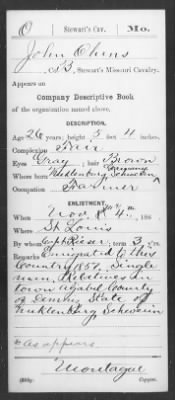 O | Stewart's Cav. | Mo.
John Ohms
Co. B, Stewart's Missouri Cavalry.
Appears on
Company Descriptive Book
of the organization named above.
DESCRIPTION.
Age 26 years; height 5 feet 4 inches.
Complexion Fair
Eyes Gray; hair Brown
Where born Mecklenburg Schwerin
Occupation Farmer
ENLISTMENT.
When Nov. 4", 186
Where St Louis
By whom Capt Rieser; term 3 y'rs.
Remarks Emigrated to this
Country 1857. Single
man. Relatives in
Town County
of State of
Mecklenburg Schwerin
as appears
Montague
Copyist.